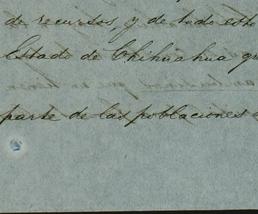 de recursos, y de todo esto
Estado de Chihuahua qu
parte de las poblaciones